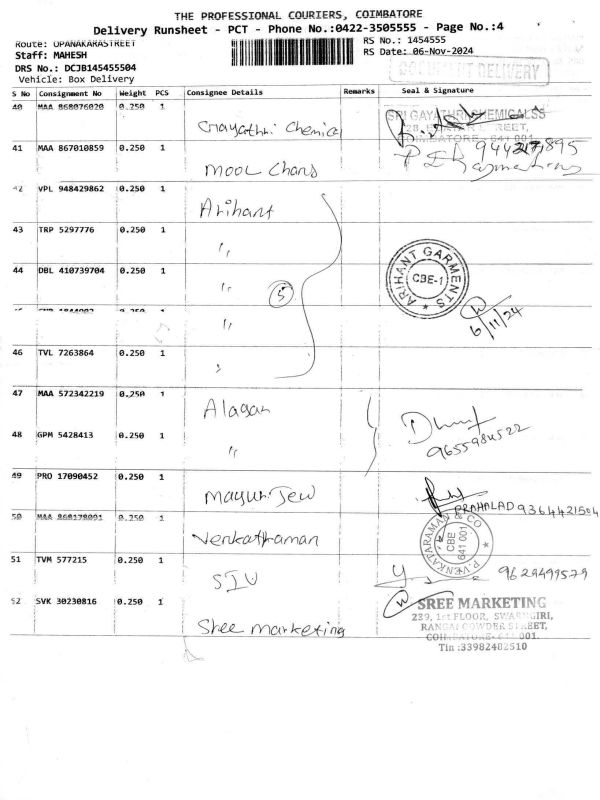 THE PROFESSIONAL COURIERS, COIMBATORE
Delivery Runsheet - PCT - Phone No.:0422-3505555 - Page No.:4
Route: OPANAKARASTREET RS No.: 1454555
Staff: MAHESH RS Date: 06-Nov-2024
DRS No.: DCJB145455504
DOCUMENT DELIVERY
Vehicle: Box Delivery
S No Consignment No Weight PCS Consignee Details Remarks Seal & Signature
40 MAA 868076020 0.250 1
Gayathri Chemical
SRI GAYATHRI CHEMICALSS
STREET,
COIMBATORE 641 001
41 MAA 867010859 0.250 1
Mool Chand
42 VPL 948429862 0.250 1
Arihant
43 TRP 5297776 0.250 1
"
44 DBL 410739704 0.250 1
" 5
ARIHANT GARMENTS CBE-1
0.250 1
"
6/11/24
46 TVL 7263864 0.250 1
"
47 MAA 572342219 0.250 1
Alagan
48 GPM 5428413 0.250 1
"
9655984522
49 PRO 17090452 0.250 1
Mayuri Jew
PRAHALAD 9364421504
50 MAA 868178091 0.250 1
Venkathaman
P.VENKATARAMAN & CO CBE 641 001
51 TVM 577215 0.250 1
SIV
9629499579
52 SVK 30230816 0.250 1
Shree Marketing
SREE MARKETING
239, 1st FLOOR, SWARNGIRI,
RANGAI GOWDER STREET,
COIMBATORE- 641 001.
Tin :33982482510